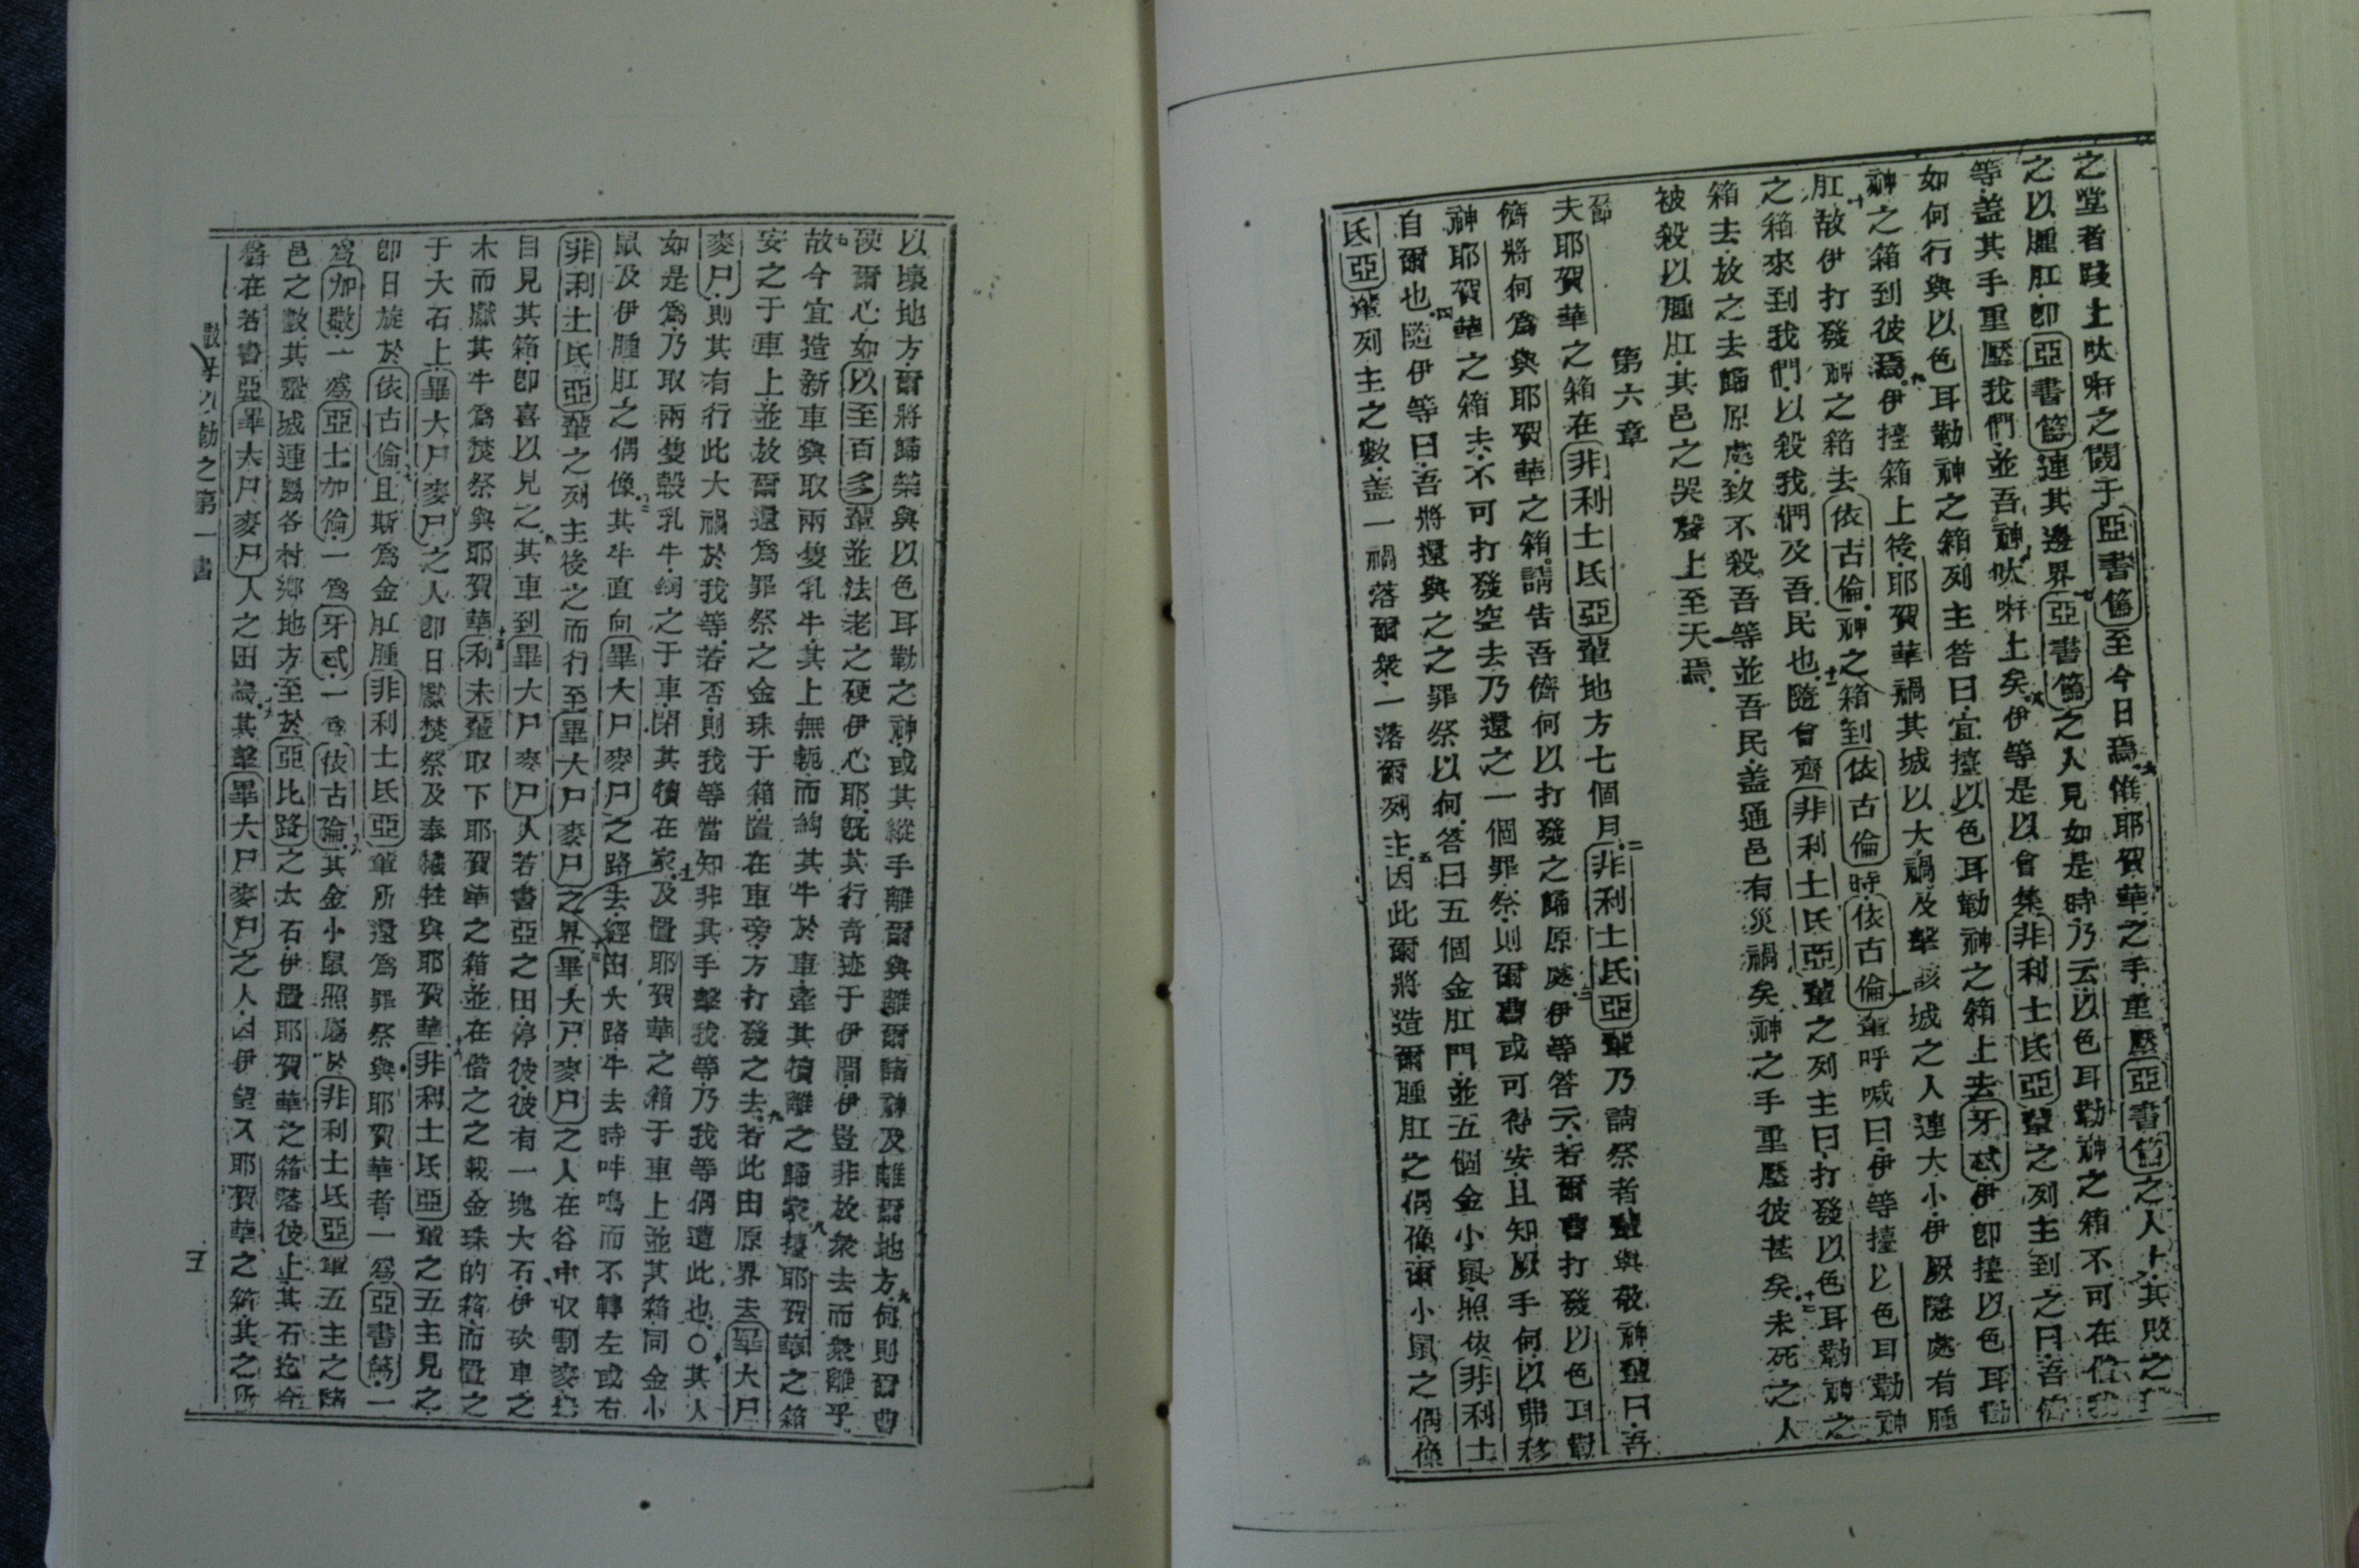 之堂者踐土吠唽之閾于亞書篤至今日焉六惟耶賀華之手重壓亞書篤之人上其敗之
之以腫肛卽亞書篤連其邊界七亞書篤之人見如是時乃云以色耳勒神之箱不可在偕我
等盖其手重壓我們並吾神吠唽上矣八伊等是以會集非利士氏亞輩之列主到之曰吾儕
如何行與以色耳勒神之箱列主答曰宜擡以色耳勒神之箱上去牙忒伊卽擡以色耳勒
神之箱到彼焉九伊擡箱上後耶賀華禍其城以大禍及擊該城之人連大小伊厥隱處有腫
肛十故伊打發神之箱去依古倫神之箱到依古倫時依古倫輩呼喊曰伊等擡以色耳勒神
之箱來到我們以殺我們及吾民也十一隨會齊非利士氏亞輩之列主曰打發以色耳勒神之
箱去放之去歸原處致不殺吾等並吾民盖通邑有災禍矣神之手重壓彼甚矣十二未死之人
被殺以腫肛其邑之哭聲上至天焉
第六章
一節夫耶賀華之箱在非利士氏亞輩地方七個月二非利士氏亞輩乃請祭者輩與敬神輩曰吾
儕將何爲與耶賀華之箱請告吾儕何以打發之歸原處三伊等答云若爾曹打發以色耳勒
神耶賀華之箱去不可打發空去乃還之一個罪祭則爾曹或可得安且知厥手何以弗移
自爾也四隨伊等曰吾將還與之之罪祭以何答曰五個金肛門並五個金小鼠照依非利士
氏亞輩列主之數盖一禍落爾衆一落爾列主五因此爾將造爾腫肛之偶像爾小鼠之偶像
以壞地方爾將歸榮與以色耳勒之神或其縱手離爾與離爾諸神及離爾地方六何則爾曹
硬爾心如以至百多輩並法老之硬伊心耶旣其行奇迹于伊間伊豈非放衆去而衆離乎
七故今宜造新車與取兩隻乳牛其上無軛而綯其牛於車牽其犢離之歸家八擡耶賀華之箱
安之于車上並放爾還爲罪祭之金珠于箱置在車旁方打發之去九若此由原界去畢大尸
麥尸則其有行此大禍於我等若否則我等當知非其手擊我等乃我等偶遭此也〇十其人
如是爲乃取兩隻轂乳牛綯之于車閉其犢在家十一及置耶賀華之箱于車上並其箱同金小
鼠及伊腫肛之偶像十二其牛直向畢大尸麥尸之路去經由大路牛去時吽鳴而不轉左或右
非利士氏亞輩之列主後之而行至畢大尸麥尸之界十三畢大尸麥尸之人在谷中收割麥
目見其箱卽喜以見之十四其車到畢大尸麥尸人若書亞之田停彼彼有一塊大石伊砍車之
木而獻其牛爲焚祭與耶賀華十五利未輩取下耶賀華之箱並在偕之之載金珠的箱而置之
于大石上畢大尸麥尸之人卽日獻焚祭及奉犧牲與耶賀華十六非利士氏亞輩之五主見之
卽日旋於依古倫十七且斯爲金肛腫非利士氏亞輩所還爲罪祭與耶賀華者一爲亞書篤一
爲加撒一爲亞士加倫一爲牙忒一爲依古倫十八其金小鼠照屬於非利士氏亞輩五主之諸
邑之數其鞏城連屬各村鄉地方至於亞比路之大石伊置耶賀華之箱落彼上其石迄今
猶在若書亞畢大尸麥尸人之田歲十九其擊畢大尸麥尸之人因伊望入耶賀華之箱其之所
撒母以勒之第一書
五